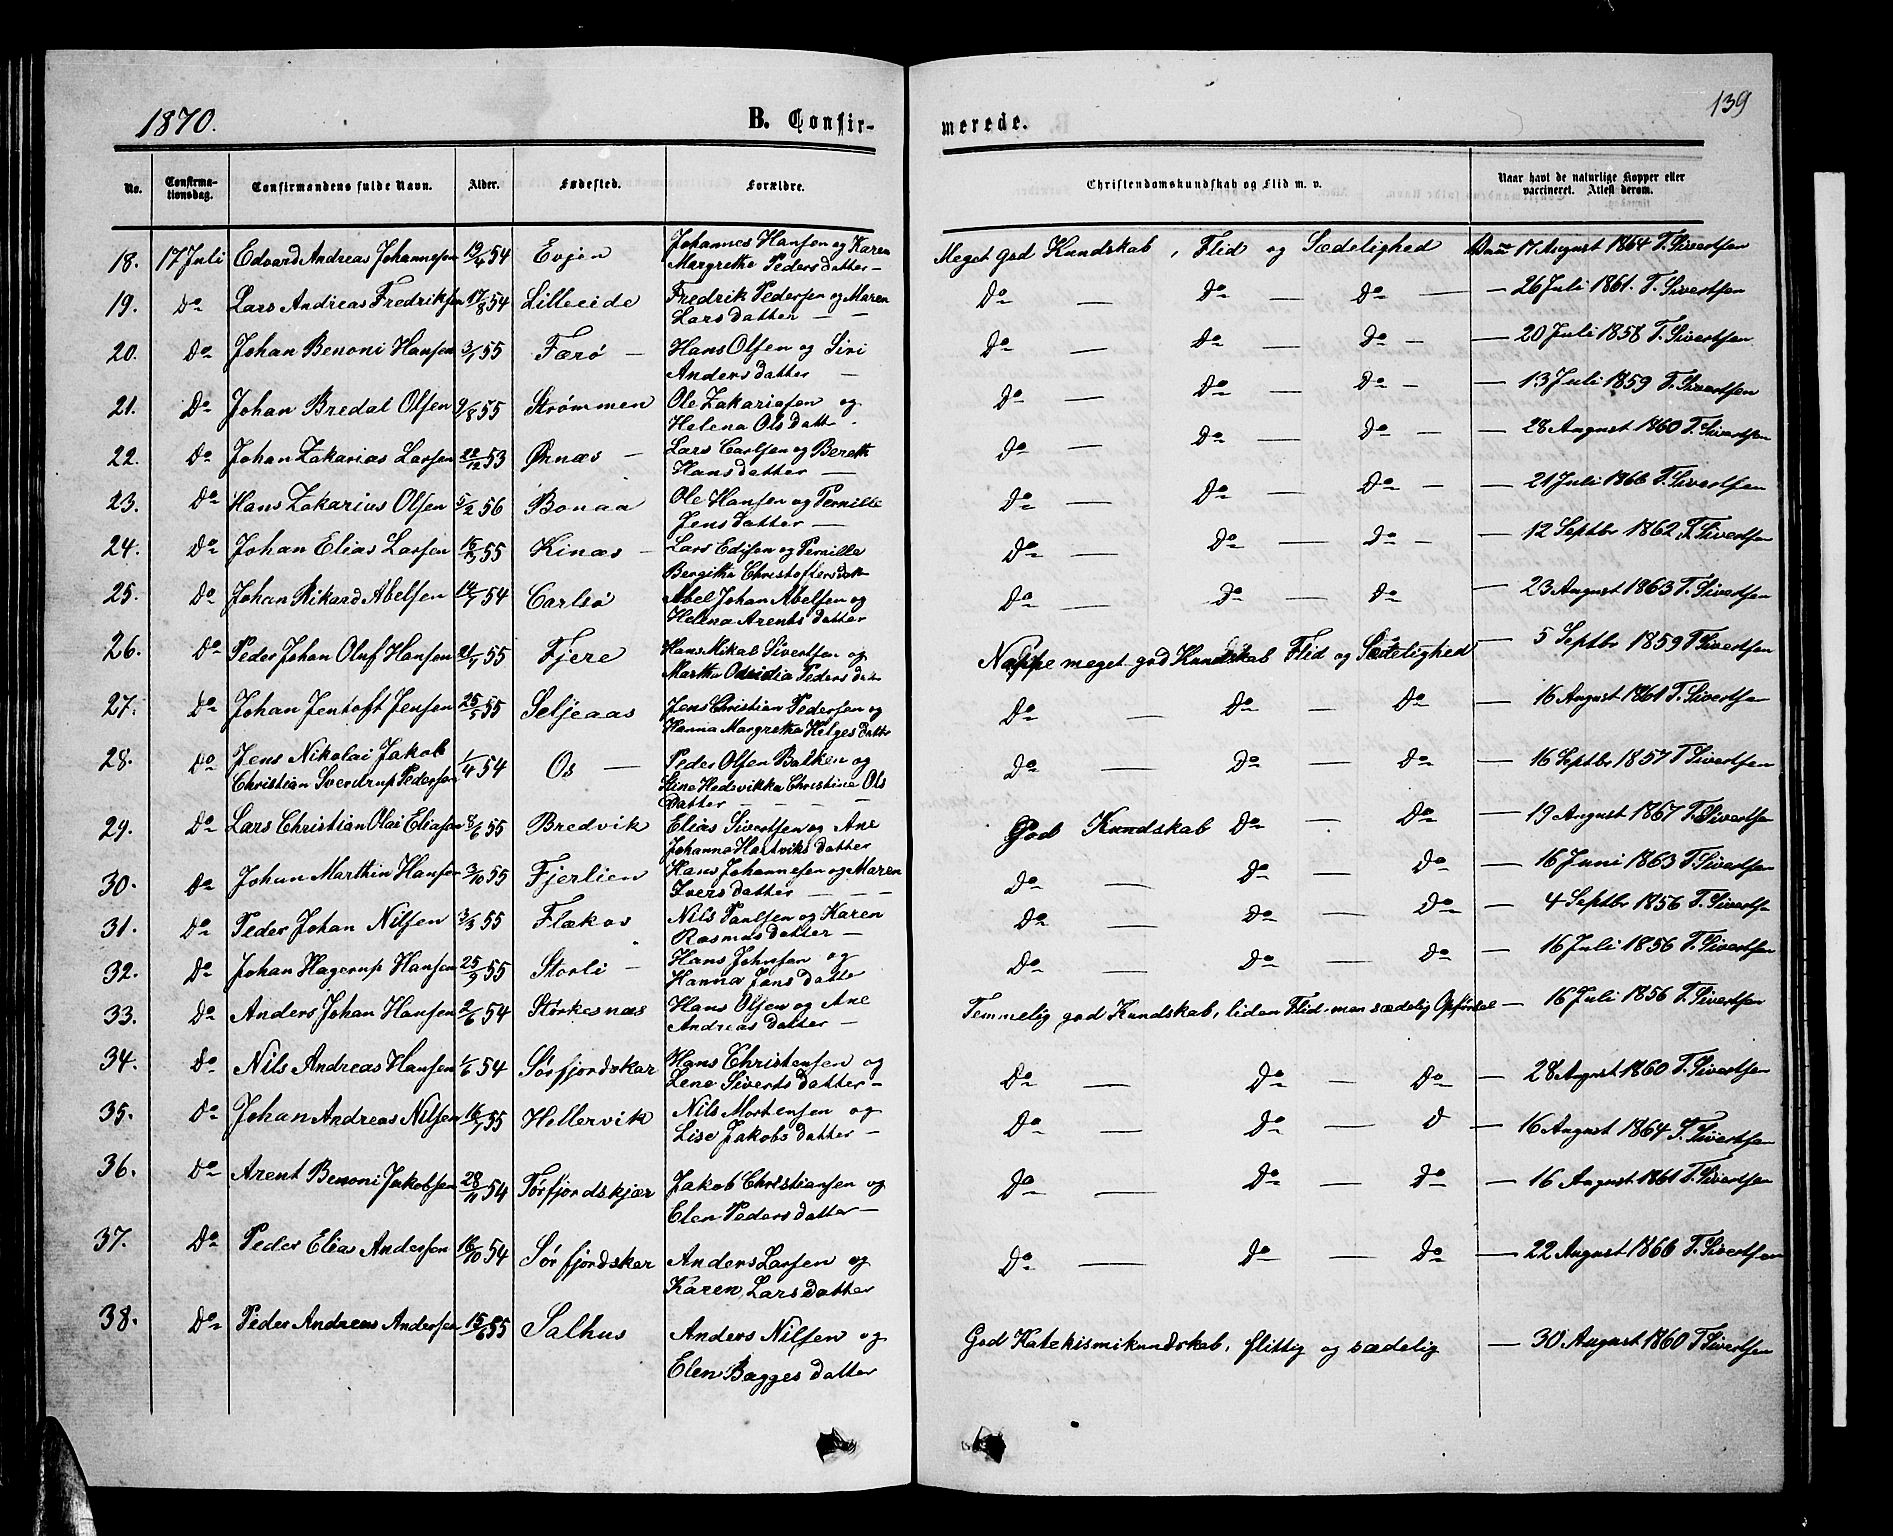 1870.
B. Confir-
merede.
139
No.
Confirma-
tionsdag.
Confirmandens fulde Navn.
Alder.
Fødested.
Forældre.
Christendomskundskab og Flid m. v.
Naar havt de naturlige Kopper eller
vaccineret. Attest derom.
18. 17 Juli Edvard Andreas Johannesen 19/4 54 Evjen Johannes Hansen og Karen
Margrethe Pedersdatter — Meget god Kundskab, Flid og Sædelighed 17 August 1864 T. Sivertsen
19. Do Lars Andreas Fredriksen 17/8 54 Lilleeide Fredrik Pedersen og Maren
Larsdatter — — Do — Do — Do — — 26 Juli 1861. T. Sivertsen
20. Do Johan Benoni Hansen 3/7 55 Færø — Hans Olsen og Siri
Andersdatter — Do — Do — Do — — 20 Juli 1858 T. Sivertsen
21. Do Johan Bredal Olsen 9/8 55 Strømmen Ole Zakariasen og
Helena Olsdatt. Do — Do — Do — — 13 Juli 1859 T. Sivertsen
22. Do Johan Zakarias Larsen 22/12 53 Ørnæs — Lars Carlsen og Bereth
Hansdatter — Do — Do — Do — — 28 August 1860 T. Sivertsen
23. Do Hans Zakarius Olsen 5/2 56 Bonaa Ole Hansen og Pernille
Jensdatter — Do — Do — Do — — 21 Juli 1866 T. Sivertsen
24. Do Johan Elias Larsen 55 Kinæs — Lars Edisen og Pernille
Bergitha Christoffersdatt Do — Do — Do — — 12 Septbr 1862 T. Sivertsen
25. Do Johan Rikard Abelsen 14/7 54 Carlsø Abel Johan Abelsen og
Helena Arentsdatter Do — Do — Do — 23 August 1863 T. Sivertsen
26. Do Peder Johan Oluf Hansen 21/7 55 Fjere Hans Mikal Sivertsen og
Martha Pedersdatr Nappe meget god Kundskab Flid og Sædelighed — 5 Septbr 1859 T. Sivertsen
27. Do Johan Jentoft Jensen 25/5 55 Seljeaas Jens Christian Pedersen og
Hanna Margretha Helgesdatter Do — Do — Do — 16 August 1861 T. Sivertsen
28. Do Jens Nikolai Jakob
Christian Sverdrup Pedersen 1/4 54 Os — Peder Olsen Balken og
Stine Hedevikka Christine Ols
datter — — — — Do — Do — Do — 16 Septbr 1857 T. Sivertsen
29. Do Lars Christian Olai Eliasen 8/6 55 Bredvik Elias Sivertsen og Ane
Johanna Hartviksdatter God Kundskab Do — Do — 19 August 1867 T. Sivertsen
30. Do Johan Marthin Hansen 3/10 55 Fjerlien Hans Johannesen og Maren
Iversdatter — — — Do — Do — Do — 16 Juni 1863 T. Sivertsen
31. Do Peder Johan Nilsen 3/3 55 Flækos Nils Paulsen og Karen
Rasmusdatter — Do — Do — Do — 4 Septbr 1856 T. Sivertse
32. Do Johan Hagerup Hansen 25/9 55 Storli — Hans Johnsen og
Hanna Jensdatter Do — Do — Do — 16 Juli 1856 T. Sivertsen
33. Do Anders Johan Hansen 2/6 54 Storkesnæs Hans Olsen og Ane
Andreasdatter — Temmelig god Kundskab, liden Flid, men sædelig Opførsel — 16 Juli 1856 T. Sivertsen
34. Do Nils Andreas Hansen 1/6 54 Sørfjordskar Hans Christensen og
Lene Sivertsdatter — Do — Do — Do — 28 August 1860 T. Sivertsen
35. Do Johan Andreas Nilsen 16/7 55 Hellervik Nils Mortensen og
Lise Jakobsdatter — Do — Do — D — 16 August 1864 T. Sivertsen
36. Do Arent Benoni Jakobsen 28/11 54 Sørfjordskjær Jakob Christiansen og
Elen Pedersdatter — Do — Do — Do — 16 August 1861 T. Sivertsen
37. Do Peder Elias Andersen 16/10 54 Sørfjordskar Anders Larsen og
Karen Larsdatter Do — Do — Do — 22 August 1866 T. Sivertsen
38. Do Peder Andreas Andersen 15/6 55 Salhus Anders Nilsen og
Elen Baggesdatter God Katekismikundskab, flittig og sædelig — 30 August 1860 T. Sivertsen